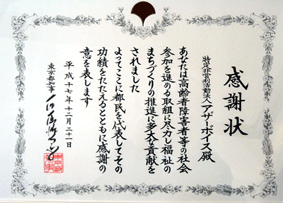 感謝状
特定非営利活動法人アナザーボイス殿
あなたは高齢者障害者等の社会
参加を進める取組に尽力し福祉の
まちづくりの推進に多大な貢献を
されました
よってここに都民を代表してその
功績をたたえるとともに感謝の
意を表します
平成十七年十二月二十一日
東京都知事